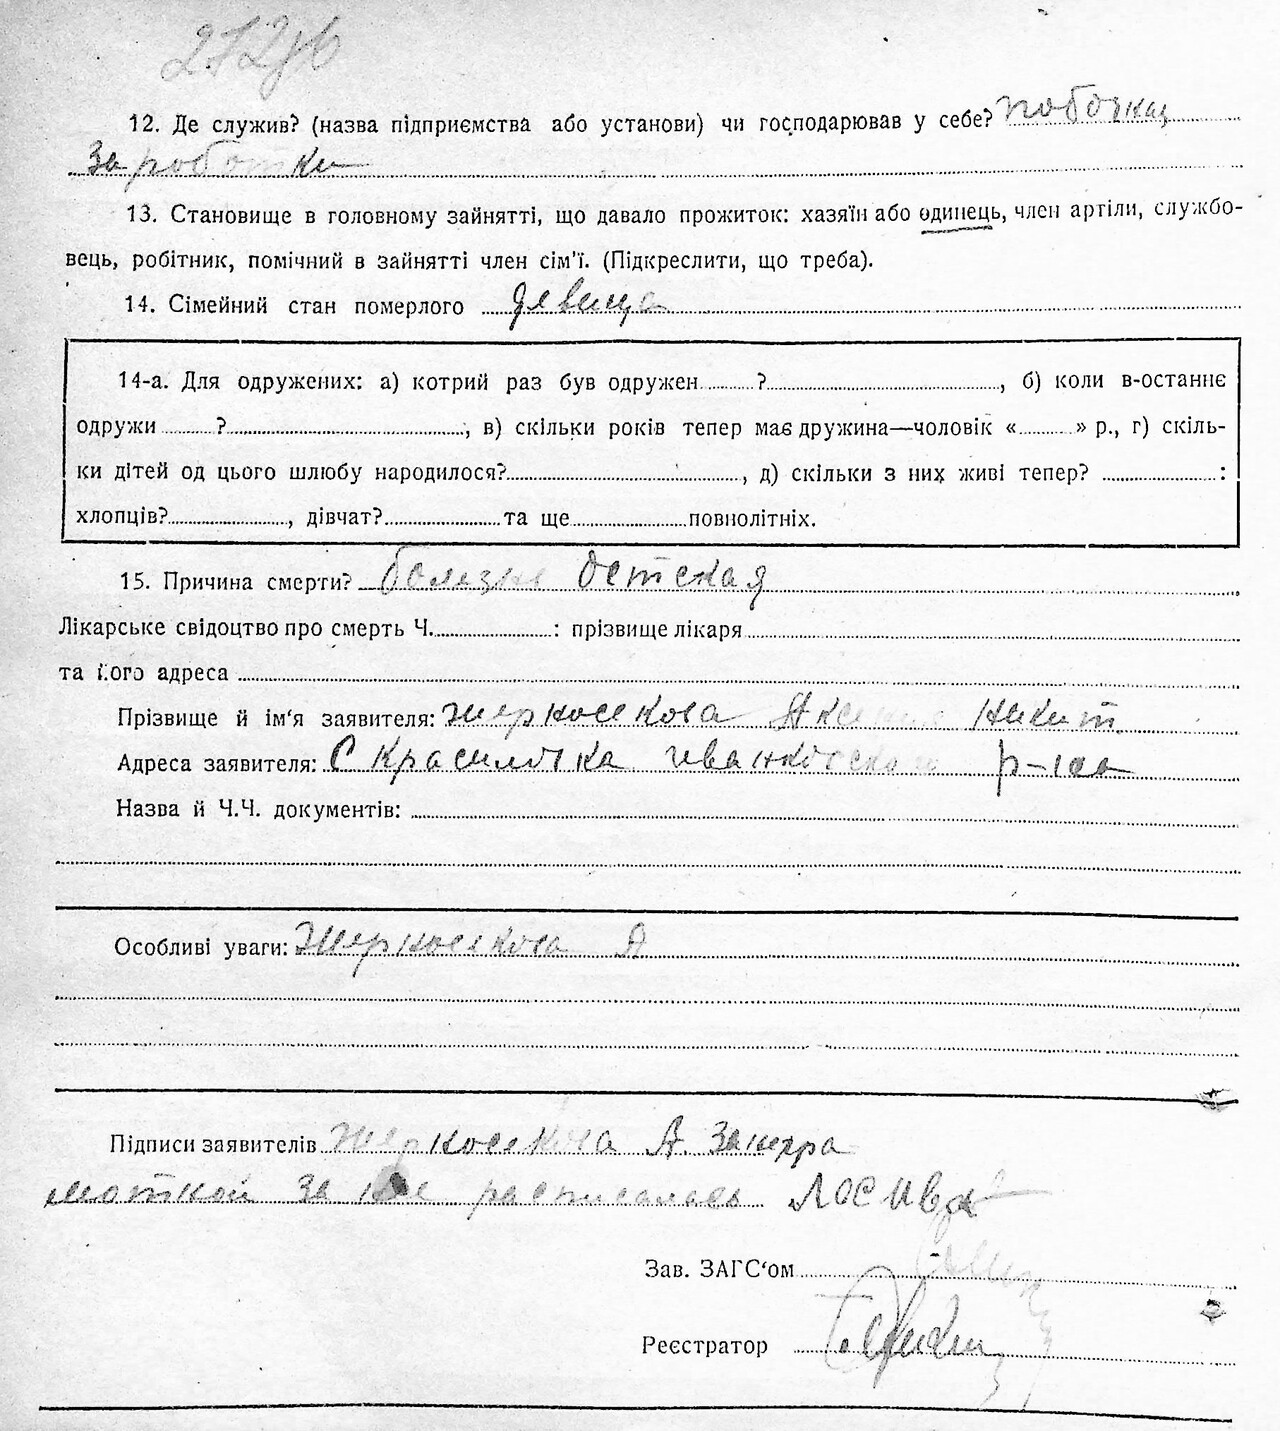 12. Де служив? (назва підприємства або установи) чи господарював у себе? побочнии
заработки
13. Становище в головному зайнятті, що давало прожиток: хазяїн або одинець, член артіли, службо-
вець, робітник, помічний в зайнятті член сім'ї. (Підкреслити, що треба).
14. Сімейний стан померлого девица
14-а. Для одружених: а) котрий раз був одружен ? , б) коли в-останнє
одружи ? , в) скільки років тепер має дружина—чоловік « » р., г) скіль-
ки дітей од цього шлюбу народилося? , д) скільки з них живі тепер? :
хлопців? , дівчат? та ще повнолітніх.
15. Причина смерти? болезнь детская
Лікарське свідоцтво про смерть Ч. : прізвище лікаря
та його адреса
Прізвище й ім'я заявителя: Жерносекова Аксения Никит.
Адреса заявителя: С Красиловка Иванковского р-на
Назва й Ч.Ч. документів:
Особливі уваги: Жерносекова А
Підписи заявителів Жерносекова А. За неgра
моткой за нее расписалась
Зав. ЗАГС'ом
Реєстратор